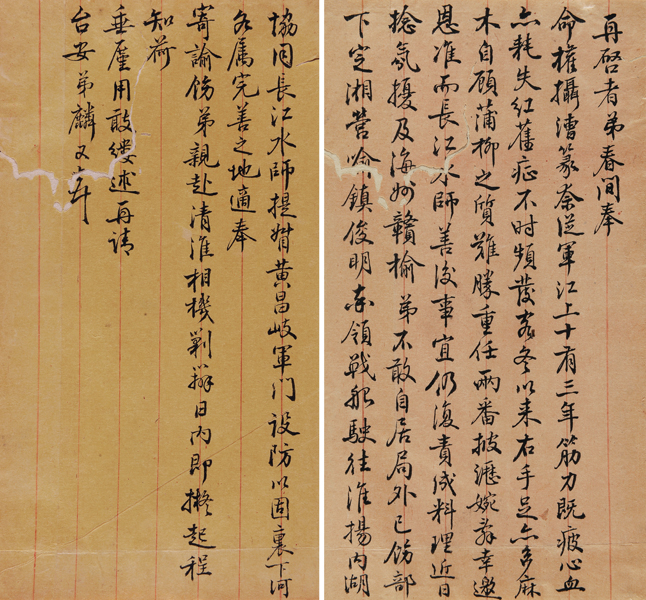 再啓者弟春間奉
命權攝漕篆奈從軍江上十有三年筋力既疲心血
亦耗失紅舊症不時頻發客冬以來右手足亦多麻
木自顧蒲柳之質難勝重任兩番披瀝婉辭幸邀
恩准而長江水師善後事宜仍復責成料理近日
捻氛擾及海州贛榆弟不敢自居局外已飭部
下定湘營喻鎮俊明率領戰船駛往淮揚內湖
協同長江水師提督黃昌岐軍門設防以固裏下河
各屬完善之地適奉
寄諭飭弟親赴清淮相機剿辦日內即擬起程
知荷
垂廑用敢縷述再請
台安弟麟又頓